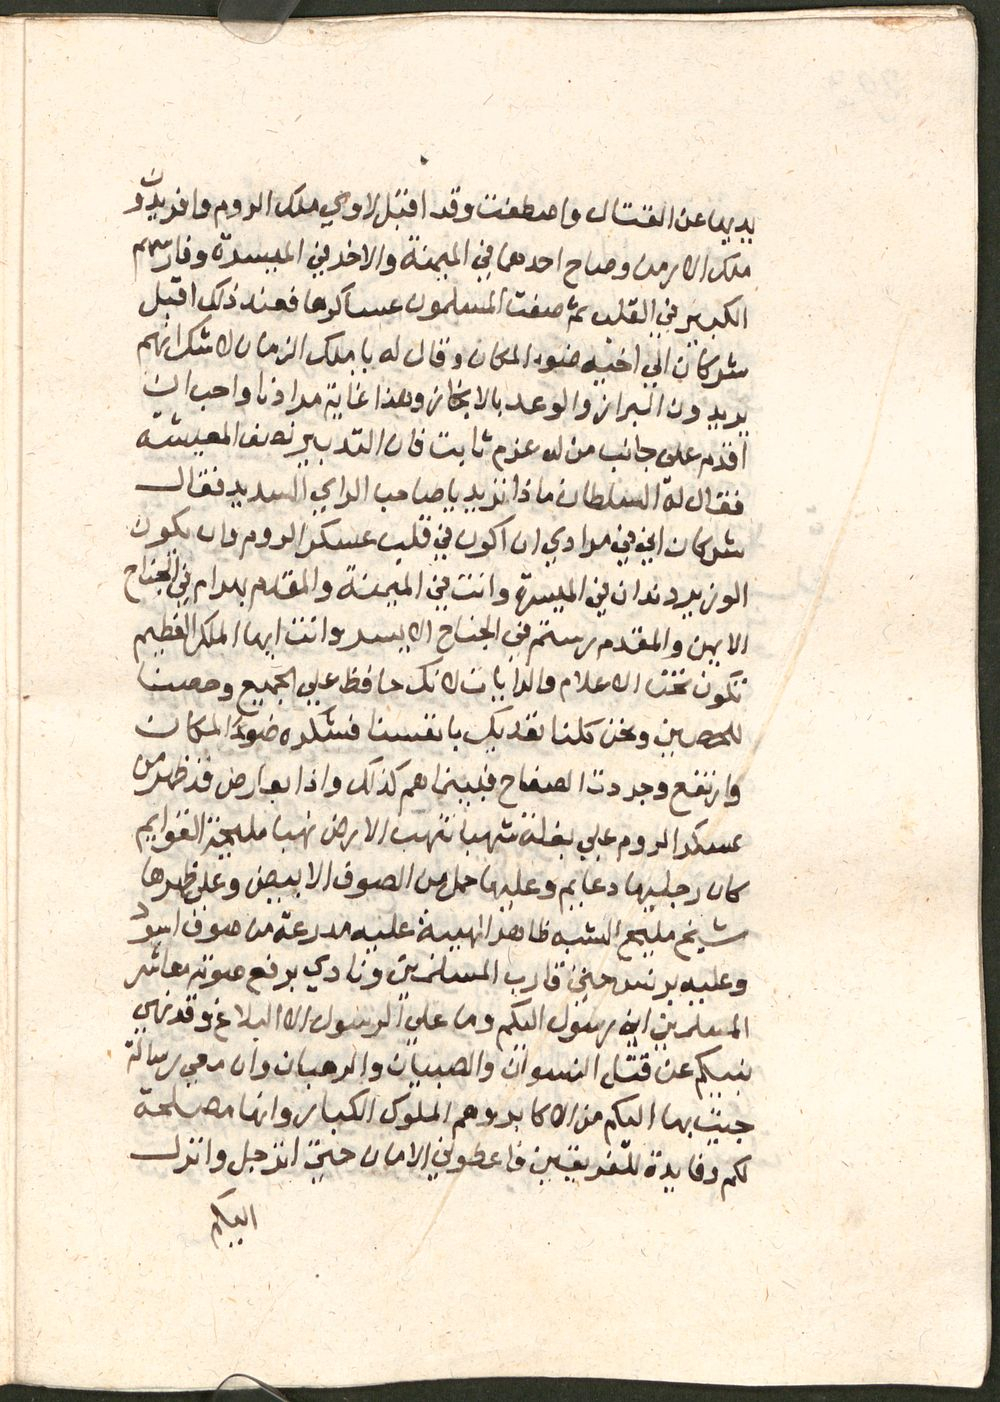 يديها عن القتال واصطفت وقد اقبل لاوي ملك الروم وافريدون
ملك الارمن وصاح احدهما في الميمنة والاخر في الميسرة وفارسهم
الكبير في القلب ثم صفت المسلمون عساكرها فعند ذلك اقبل
شركان الي اخيه ضوء المكان وقال له يا ملك الزمان لا شك انهم
يريدون البراز والوعد بالانجاز وهذا غاية مرادنا واحب ان
اقدم علي جانب من له عزم ثابت فان التدبير نصف المعيشة
فقال له السلطان ماذا تريد يا صاحب الراي السديد فقال
شركان اني في مرادي ان اكون في قلب عسكر الروم وان يكون
الوزير دندان في الميسرة وانت في الميمنة والمقدم بهرام في الجناح
الايمن والمقدم رستم في الجناح الايسر وانت ايها الملك العظيم
تكون تحت الاعلام والرايات لانك حافظ علي الجميع وحصننا
الحصين ونحن كلنا نفديك بانفسنا فشكره ضوء المكان
وارتفع وجردت الصفاح فبينما هم كذلك واذا بعارض قد ظهر من
عسكر الروم علي بغلة شهبا تنهب الارض نهبا مليحة القوايم
كان رجليها دعايم وعليها حمل من الصوف الابيض وعلي ظهرها
شيخ مليح الشبه ظاهر الهيبة عليه مدرعة من صوف اسود
وعليه برنس حتي قارب المسلمين ونادي برفع صوته معاشر
المسلمين اني رسول اليكم وما علي الرسول الا البلاغ وقد نهي
نبيكم عن قتل النسوان والصبيان والرهبان وان معي رسالة
جيت بها اليكم من الاكابر وهم الملوك الكبار وانها مصلحة
لكم وفايدة للفريقين فاعطوني الامان حتي اترجل وانزل
اليكم